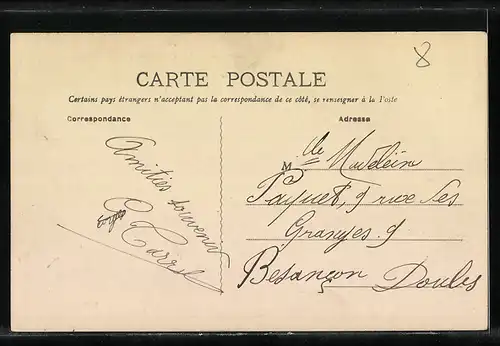 8
CARTE POSTALE
Certains pays étrangers n'acceptant pas la correspondance de ce côté, se renseigner à la Poste
Correspondance
Adresse
Amities souvenir
M lle Madelein
Paquet, 9 rue des
Granges 9
Besançon Doubs